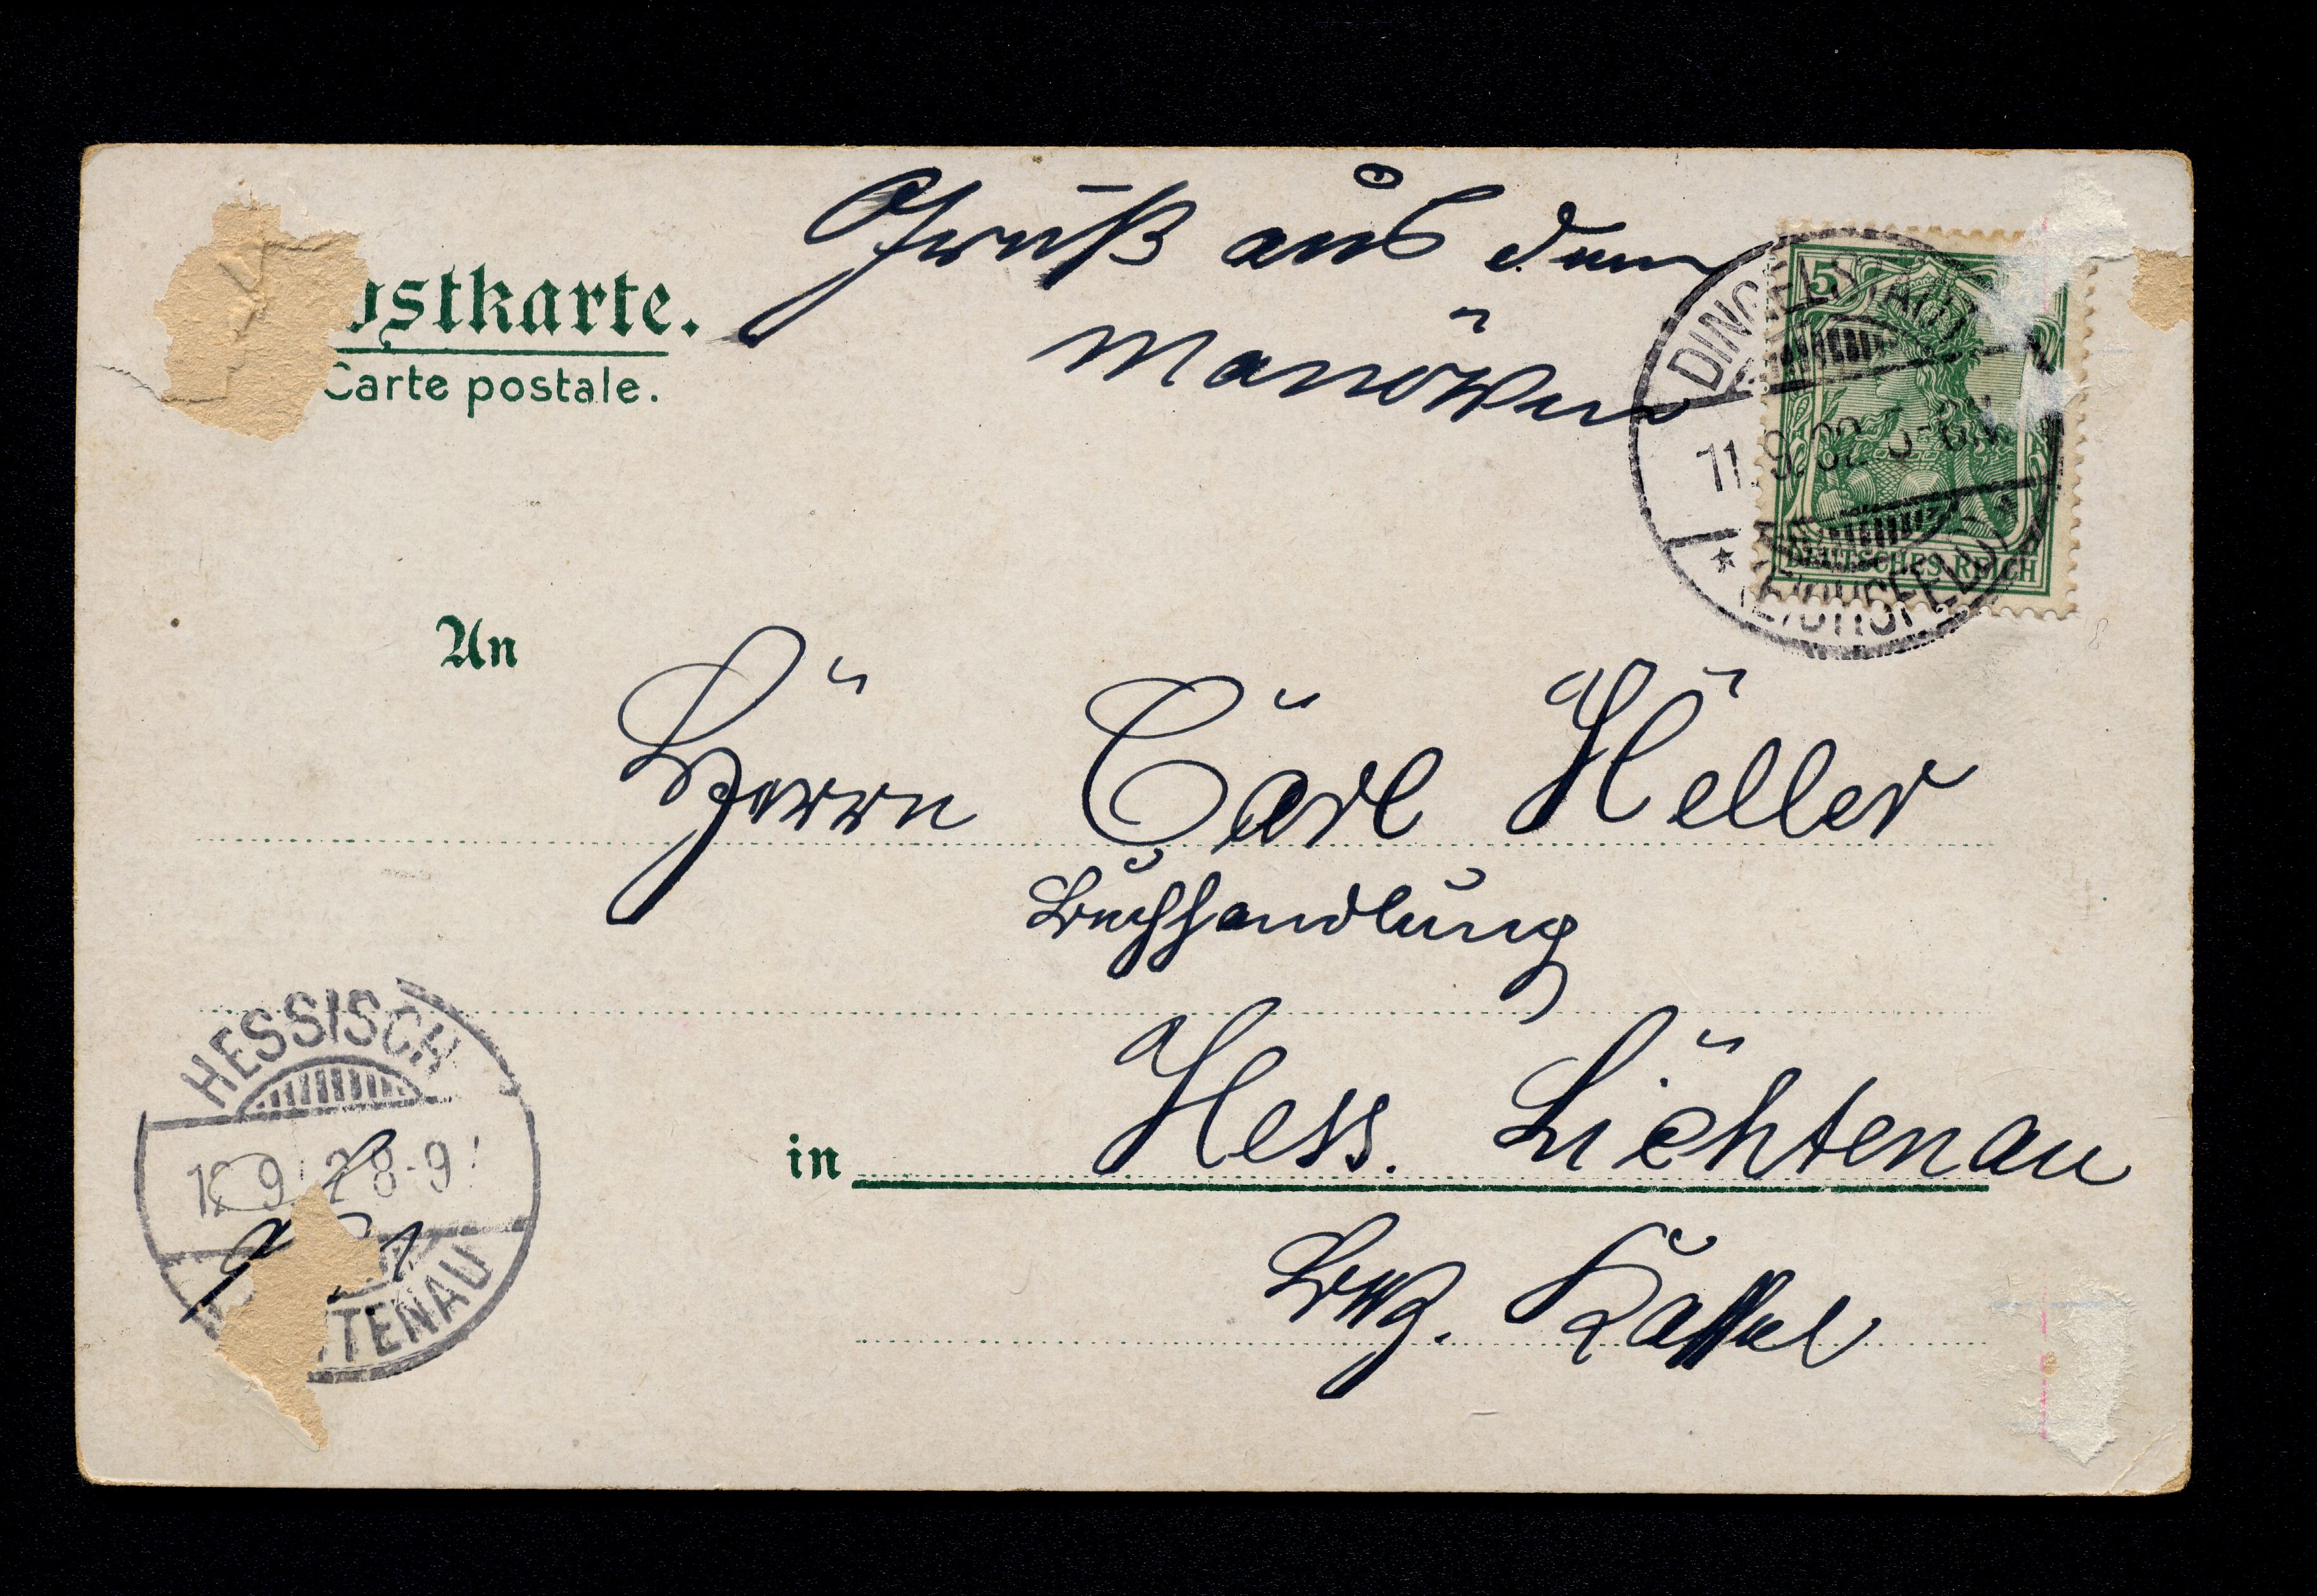 Gruß aus dem
Manöver
ostkarte.
Carte postale.
5
DINGELSTÄDT
11.9.02
(EICHSFELD)
DEUTSCHES REICH
An
Herrn Carl Heller
Buchhandlung
in Hess. Lichtenau
Bez. Kassel
HESSISCH
12 9 2 8-9
TENAU